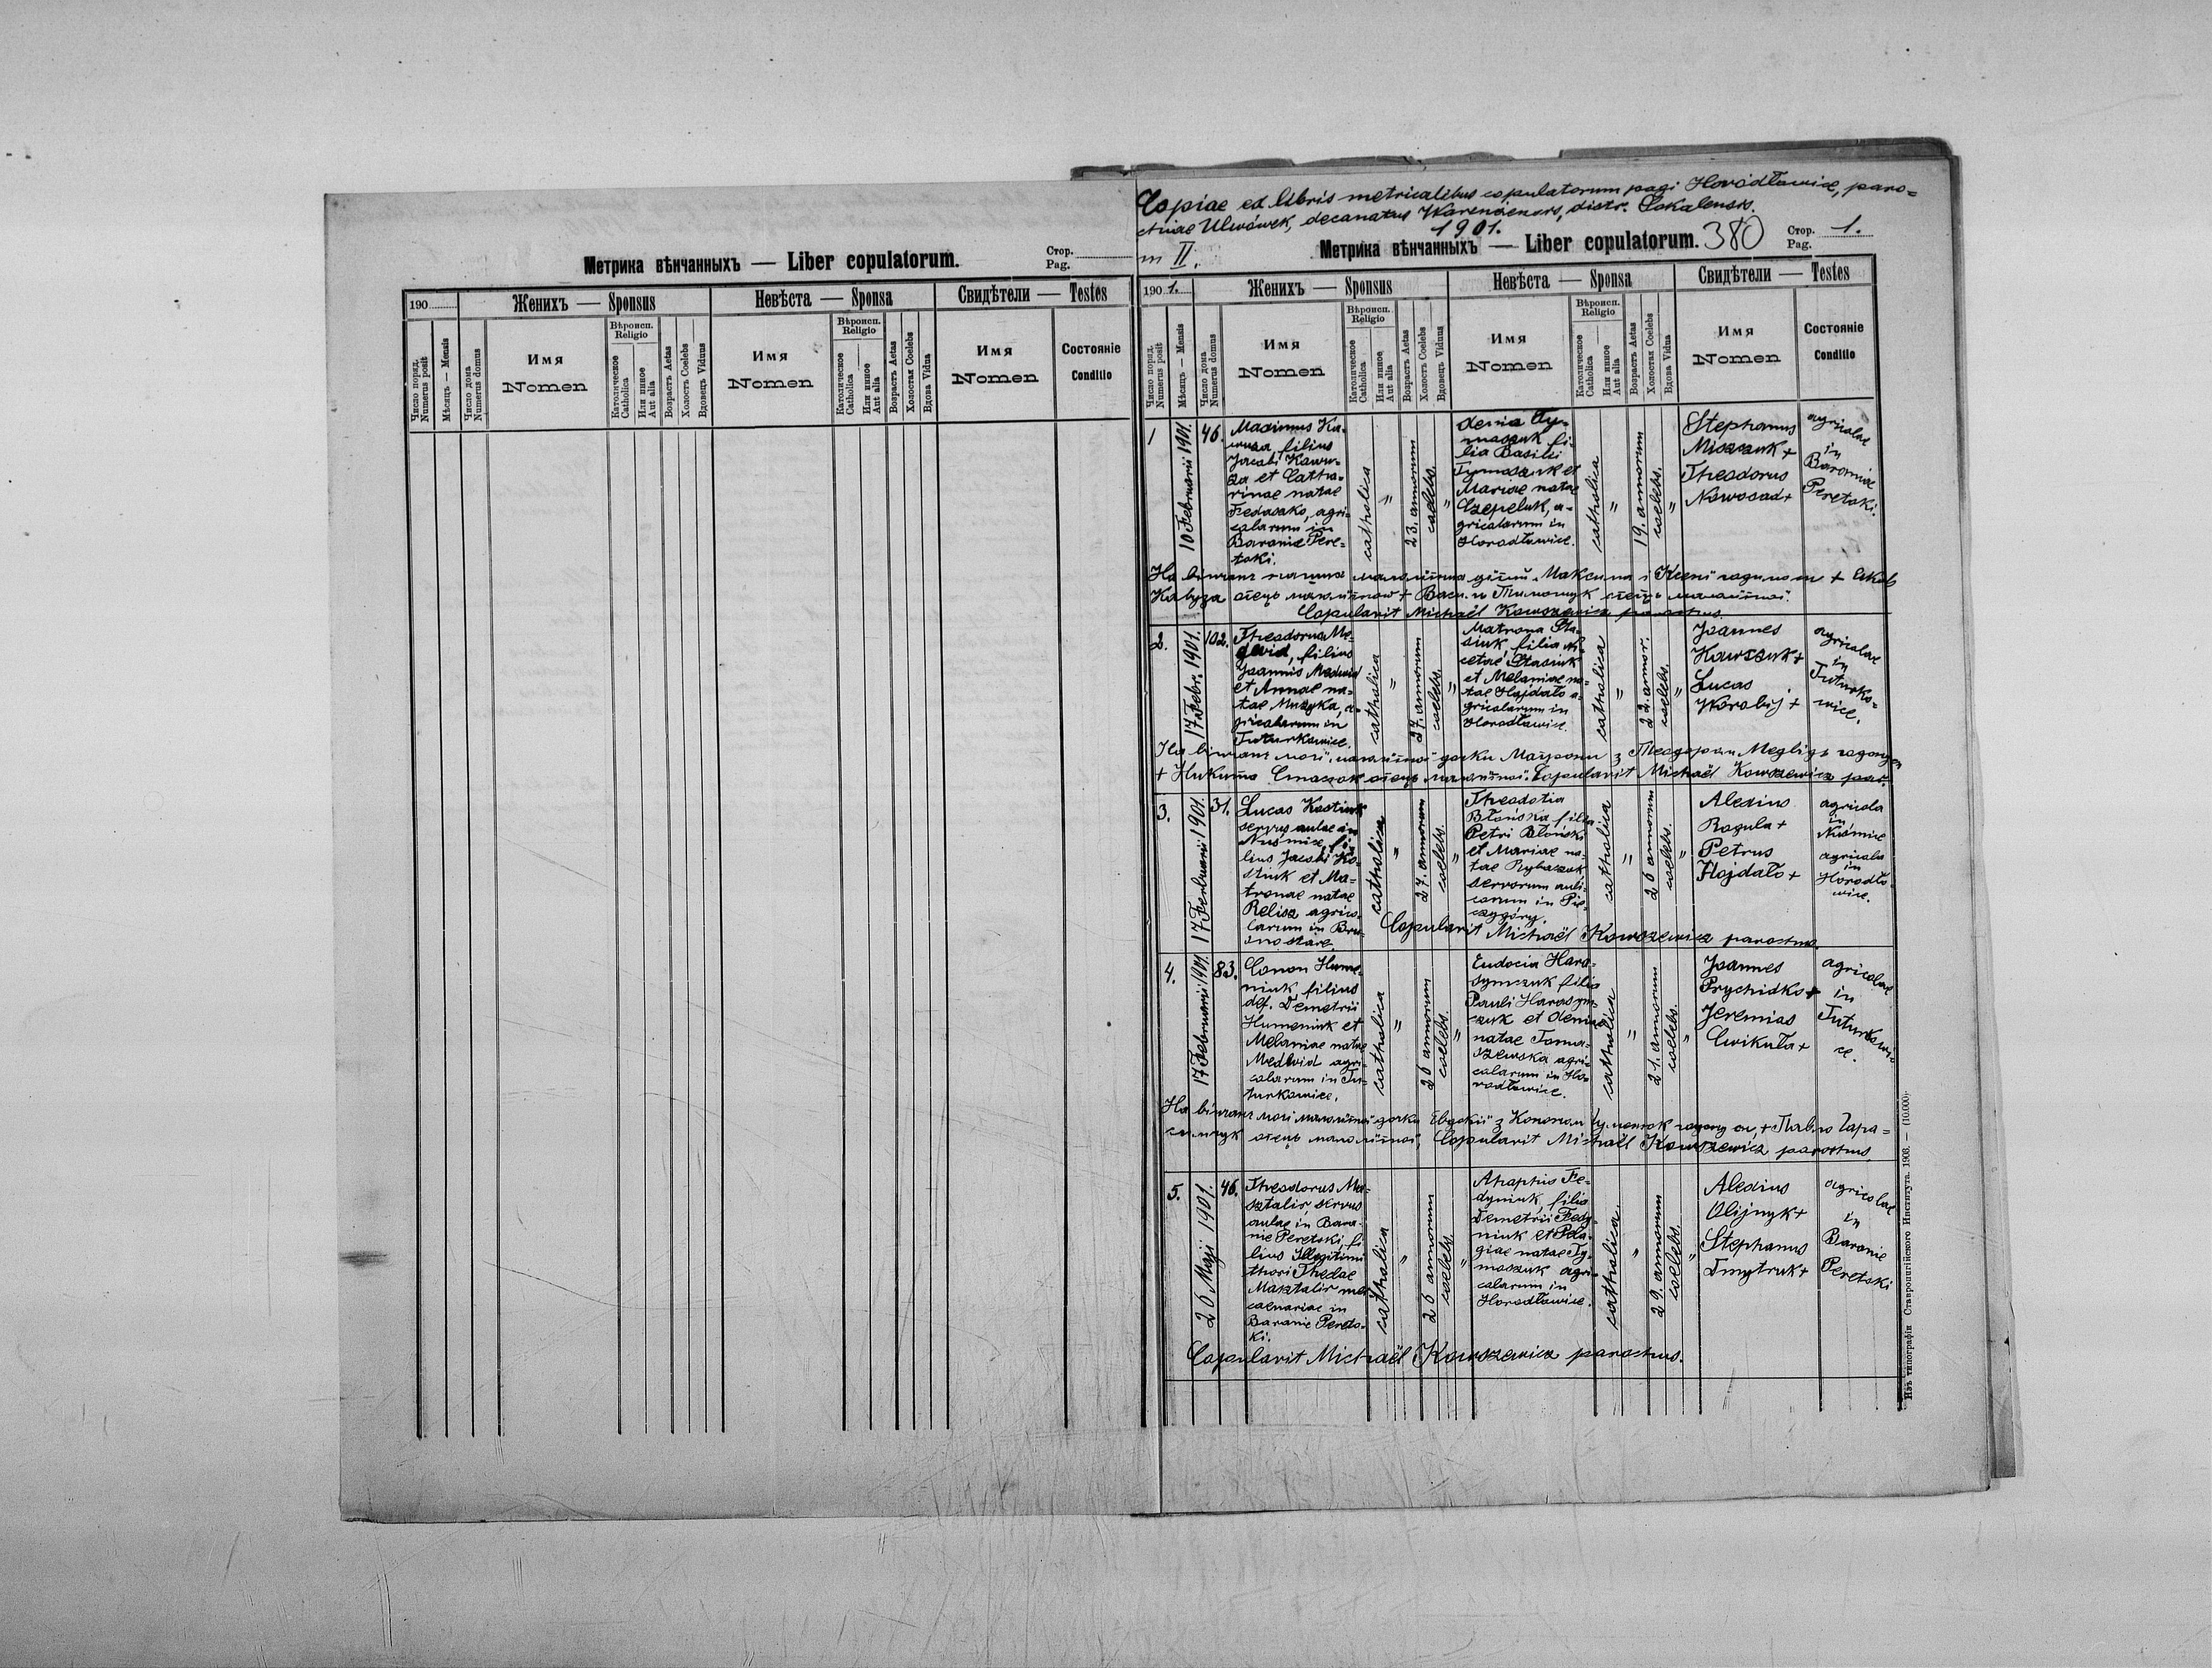 Метрика вѣнчанныхъ — Liber copulatorum.
Стор.
Pag.
190
Женихъ — Sponsus
Невѣста — Sponsa
Свидѣтели — Testes
Число поряд.
Numerus posit
Мѣсяцъ — Mensis
Число дома
Numerus domus
Имя
Nomen
Вѣроисп.
Religio
Католическое
Catholica
Или инное
Aut alia
Возрастъ Aetas
Холостъ Coelebs
Вдовецъ Viduus
Имя
Nomen
Вѣроисп.
Religio
Католическое
Catholica
Или инное
Aut alia
Возрастъ Aetas
Холостая Coelebs
Вдова Vidua
Имя
Nomen
Состояніе
Conditio
Copiae ex libris metricalibus copulatorum pagi Horodławice, paro=
chiae Ulwówek, decanatus Warensensis, distr. Sokalensis.
1901.
m II.
Метрика вѣнчанныхъ — Liber copulatorum.
380
Стор.
Pag.
1.
190 1.
Женихъ — Sponsus
Невѣста — Sponsa
Свидѣтели — Testes
Число поряд.
Numerus posit
Мѣсяцъ — Mensis
Число дома
Numerus domus
Имя
Nomen
Вѣроисп.
Religio
Католическое
Catholica
Или инное
Aut alia
Возрастъ Aetas
Холостъ Coelebs
Вдовецъ Viduus
Имя
Nomen
Вѣроисп.
Religio
Католическое
Catholica
Или инное
Aut alia
Возрастъ Aetas
Холостая Coelebs
Вдова Vidua
Имя
Nomen
Состояніе
Conditio
1
10 Februarii 1901.
46.
Maximus Ka-
wuza filius
Jacobi Kawu-
za et Catha-
rinae natae
Fedasko, agri-
colarum in
Baranie Pere-
toki.
catholica
"
23. annorum
coelebs.
"
Xenia Ty-
moszuk fi-
lia Basilii
Tymoszuk et
Mariae natae
Czepeluk, a-
gricolarum in
Horodławice.
catholica
"
19. annorum
coelebs.
"
Stephanus
Miszczuk +
Theodorus
Nowosad +
agricolae
in
Baranie
Peretoki.
Кавуза отець + Тимощук отець
Copulavit Michaël Kowszewicz parochus.
2.
17 Febr. 1901.
102.
Theodorus Me-
dwid, filius
Joannis Medwid
et Annae na-
tae Muzyka, a-
gricolarum in
Tuturkowice.
catholica
"
27. annorum
coelebs.
"
Matrona Sta-
siuk, filia Ni-
cetae Stasiuk
et Melaniae na-
tae Hajdało a-
gricolarum in
Horodławice.
catholica
"
22. annor.
coelebs.
"
Joannes
Kawszuk +
Lucas
Worobij +
agricolae
in
Tuturko-
wice.
+ Никита отець Copulavit Michaël Kowszewicz par.
3.
17 Februarii 1901
31.
Lucas Kostiuk
servus aulae in
Nuśmice, fi-
lius Jacobi Ko-
stiuk et Ma-
tronae natae
Relisz agrico-
larum in
catholica
"
27. annorum
coelebs.
"
Theodotia
Błońska filia
Petri Błoński
et Mariae na-
tae Rybaczuk
servorum auli-
corum in Pie-
czygóry.
catholica
"
26 annorum
coelebs.
"
Alexius
Rogula +
Petrus
Hajdało +
agricola
in
Nuśmice
agricola
in
Horodło-
wice.
Copulavit Michaël Kowszewicz parochus.
4.
17 Februarii 1901.
83.
Conon Hume-
niuk filius
def. Demetrii
Humeniuk et
Melaniae natae
Medwid agri-
colarum in Tu-
turkowice.
catholica
"
26 annorum
coelebs.
"
Eudocia Hara-
symczuk filia
Pauli Harasym-
czuk et Xeniae
natae Toma-
szewska agri-
colarum in Ho-
rodławice.
catholica
"
21. annorum
coelebs.
"
Joannes
Prychidko +
Jeremias
Cwikuła +
agricolae
in
Tuturkowi-
ce.
отець Copulavit Michaël Kowszewicz parochus.
5.
26 Maji 1901.
46.
Theodorus Ma-
sztalir, servus
aulae in Bara-
nie Peretoki, fi-
lius Illegitimi
thori Theclae
Masztalir mer-
cenariae in
Baranie Pereto-
ki.
catholica
"
26 annorum
coelebs.
"
Ahaphia Fe-
dyniuk, filia
Demetrii Fedy-
niuk et Pela-
giae natae Ty-
moszuk agri-
colarum in
Horodławice.
catholica
"
29. annorum
coelebs.
"
Alexius
Olijnyk +
Stephanus
Dmytruk +
agricolae
in
Baranie
Peretoki
Copulavit Michaël Kowszewicz parochus.
Изъ типографіи Ставропигійского Института. 1908. — (10.000)·